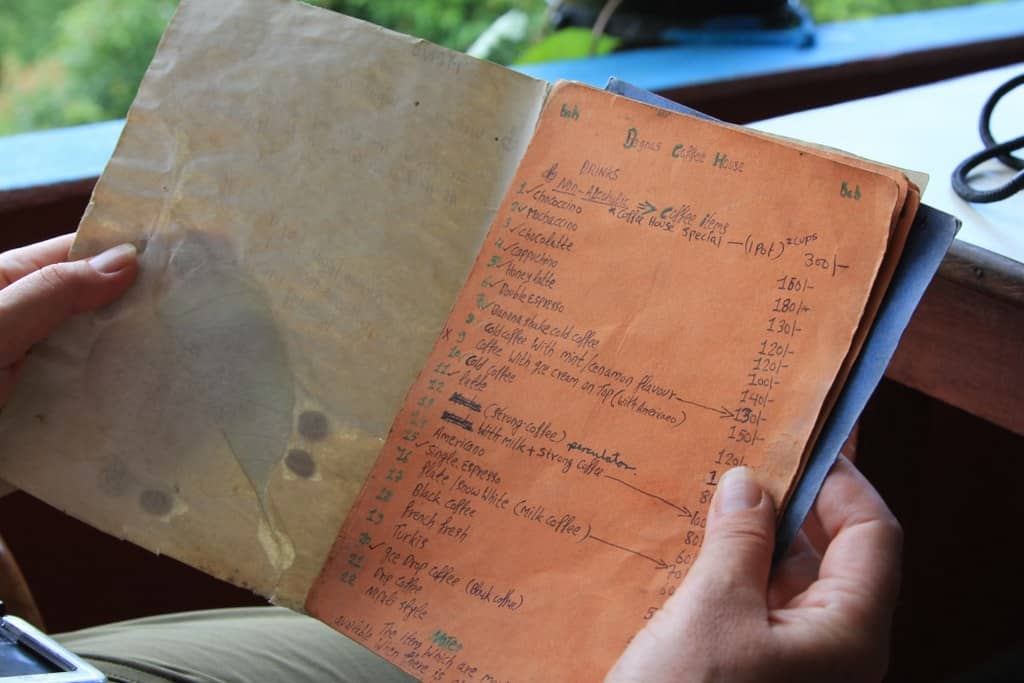 Bab
Bagnas Coffee House
Bab
DRINKS
Non-Alcoholic ⇒ Coffee Items
* Coffee House Special — (1 Pot) 2 cups 300/-
1 ✓ Chococcino 150/-
2 ✓ Mochaccino 180/-
3 ✓ Chocolatte 130/-
4 ✓ Cappuchino 120/-
5 ✓ Honey latte 120/-
6 ✓ Double Espresso 100/-
7 ✓ Banana shake cold coffee 140/-
8 Cold coffee with mint/cenamon flavour → 130/-
X 9 Coffee with ice cream on Top (with Americano) 150/-
10 Cold Coffee 120/-
11 ✓ latte
12 (strong coffee) perculator
With milk + strong coffee → 100
Americano 80
15 ✓ Single Espresso 60
16 Plate/snow white (Milk coffee) → 70
17 Black coffee
18 French fresh
19 Turkis
20 ✓ Ice Drop coffee (Black coffee)
21 Drip coffee
22 style
Note:
The Item which are
available when there is